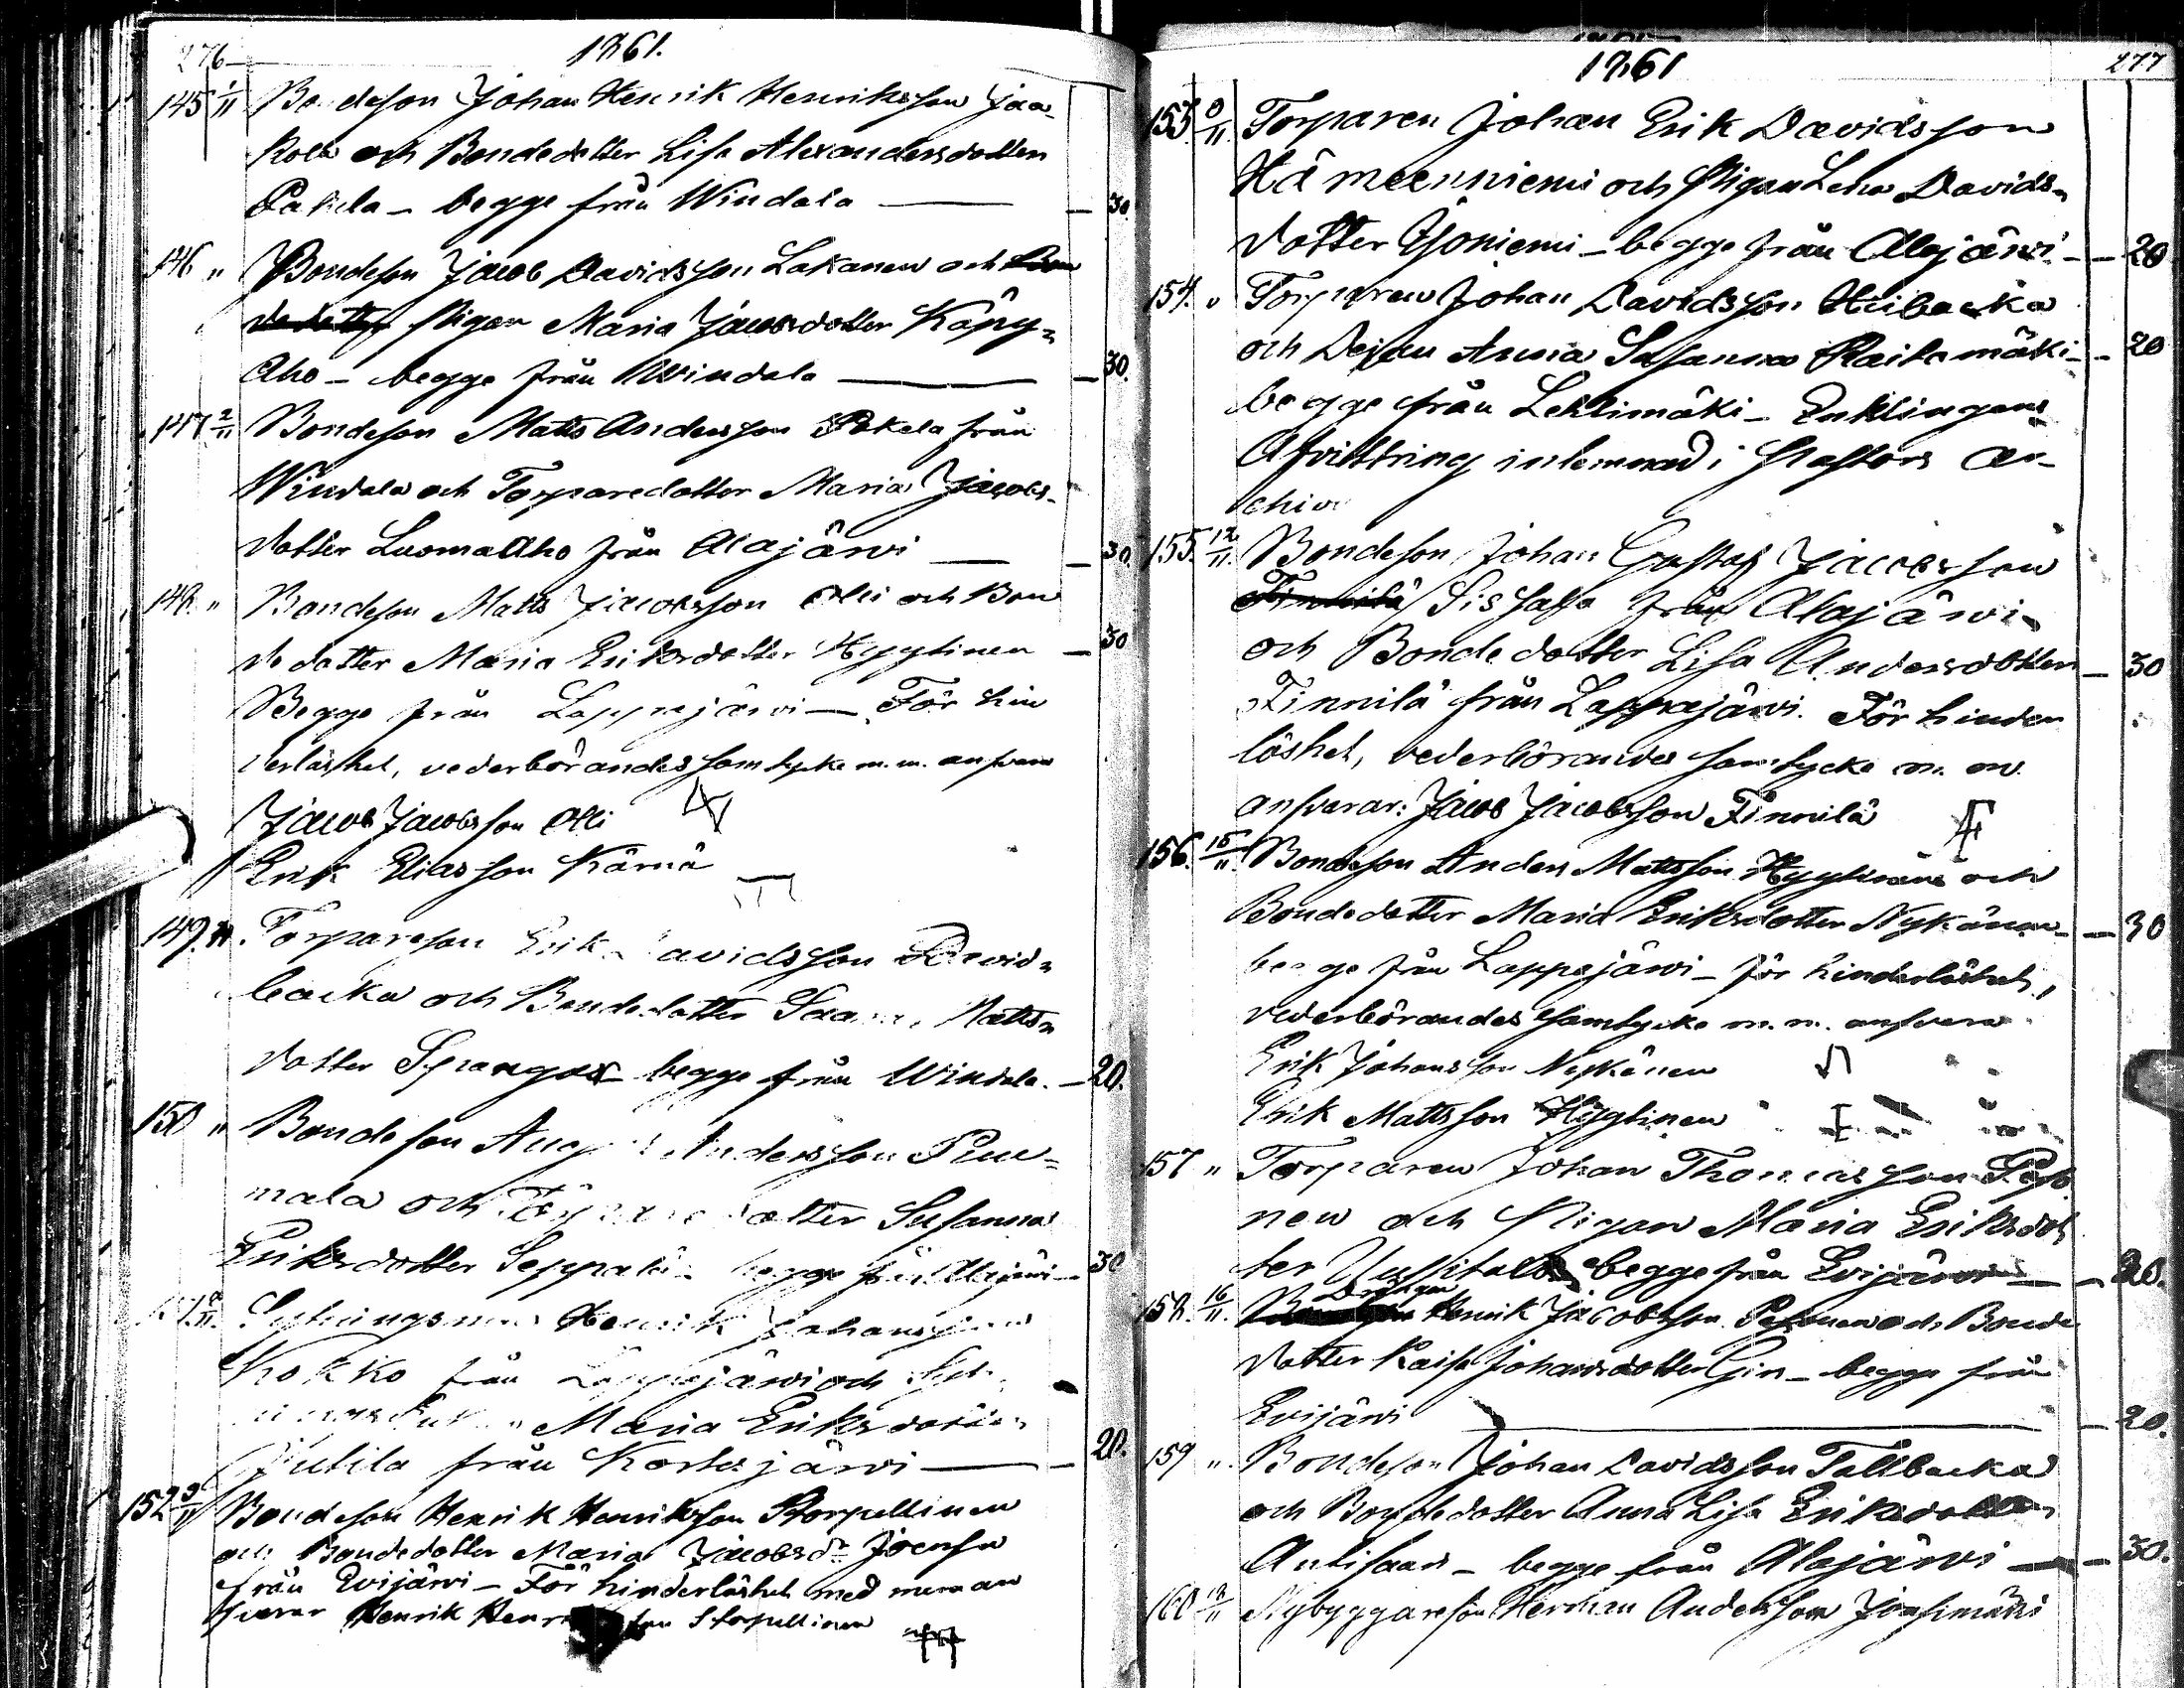 276
1861.
145 1/11 Bondeson Johan Henrik Henriksson Jaa-
kola och Bondedotter Lisa Alexandersdotter
Pakela - begge från Windala — 30.
146 " Bondeson Jacob Davidsson Lakanen och Bon
dedotter Pigan Maria Jacobsdotter Käpy=
Aho - begge från Windala — 30.
147 2/11 Bondeson Matts Andersson Pokela från
Windala och Torparedotter Maria Jacobs-
dotter LuomaAho från Alajärvi — 30.
148. " Bondeson Matts Jacobsson Olli och Bon
dedotter Maria Eriksdotter Hyytinen — 30
Begge från Lappajärvi — För hin
derlöshet, vederbörandes samtycke m.m. ansvara
Jacob Jacobsson Olli
Erik Eliasson Kärnä
149. " Torpareson Erik Davidsson David=
backa och Bondedotter Matts=
dotter Spangar - begge från Windala. — 20.
150 " Bondeson Andersson
mala och dotter Susanna
Eriksdotter Seppälä - begge från Alajärvi — 30
Henrik Johansson
Kokko från Lappajärvi och
Maria Eriksdotter
Jutila från Kortesjärvi — 20.
152 9/11 Bondeson Henrik Henriksson Storpellinen
och Bondedotter Maria Jacobsdr Joensu
från Evijärvi - För hinderlöshet med mera an
svarar Henrik Henriksson Storpellinen
1861
277
153. 9/11. Torparen Johan Erik Davidsson
Hämeenniemi och Pigan Lena Davids=
dotter Ojoniemi - begge från Alajärvi — 20
154. " Torparen Johan Davidsson Huibacka
och Dejan Anna Susanna Raitamäki — 20
begge från Lehtimäki - Enklingens
Afvittring inlemnad i Pastors Ar-
chiv
155. 12/11. Bondeson Johan Gustaf Jacobsson
Finnilä Sissala från Alajärvi
och Bondedotter Lisa Andersdotter — 30
Finnilä från Lappajärvi. För hinder
löshet, vederbörandes samtycke m. m.
ansvarar: Jacob Jacobsson Finnilä
156. 15/11. Bondeson Anders Mattsson Hyytinen och
Bondedotter Maria Eriksdotter Nykänen — 30
begge från Lappajärvi - för hinderlöshet,
vederbörandes samtycke m.m. ansvara
Erik Johansson Nykänen
Erik Mattsson Hyytinen
157 " Torparen Johan Thomasson Peso
nen och Pigan Maria Eriksdot
ter Uusitalo begge från Evijärvi — 20.
158. 16/11. Drängen Henrik Jacobsson Pesonen och Bonde
dotter Kaisa Johansdotter Gin - begge från
Evijärvi — 20.
159 " Bondeson Johan Davidsson Tallbacka
och Bondedotter Anna Lisa Eriksdotter
Antisaari - begge från Alajärvi — 30.
160 18/11 Nybyggareson Herman Andersson Joensimäki